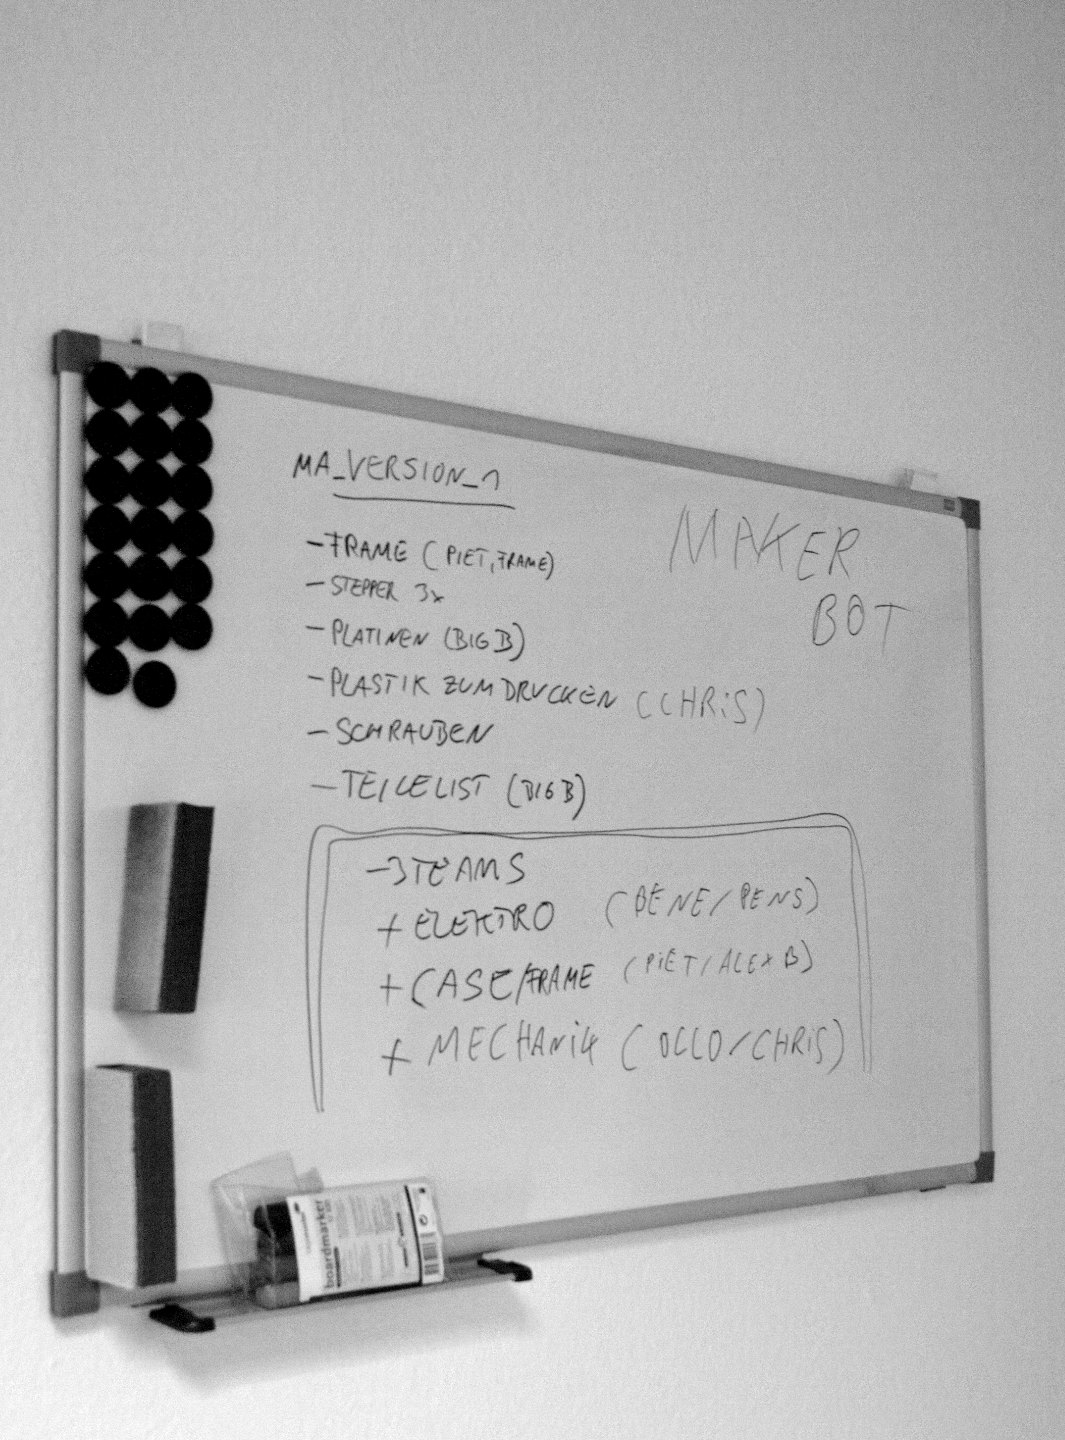 MA_VERSION_1
MAKER
BOT
- FRAME (PIET, FRAME)
- STEPPER 3x
- PLATINEN (BIG B)
- PLASTIK ZUM DRUCKEN (CHRiS)
- SCHRAUBEN
- TEILELIST (BIG B)
- 3 TEAMS
+ ELEKTRO (BENE/PENS)
+ CASE/FRAME (PiET/ALEX B)
+ MECHANiK (OLLO/CHRIS)
boardmarker